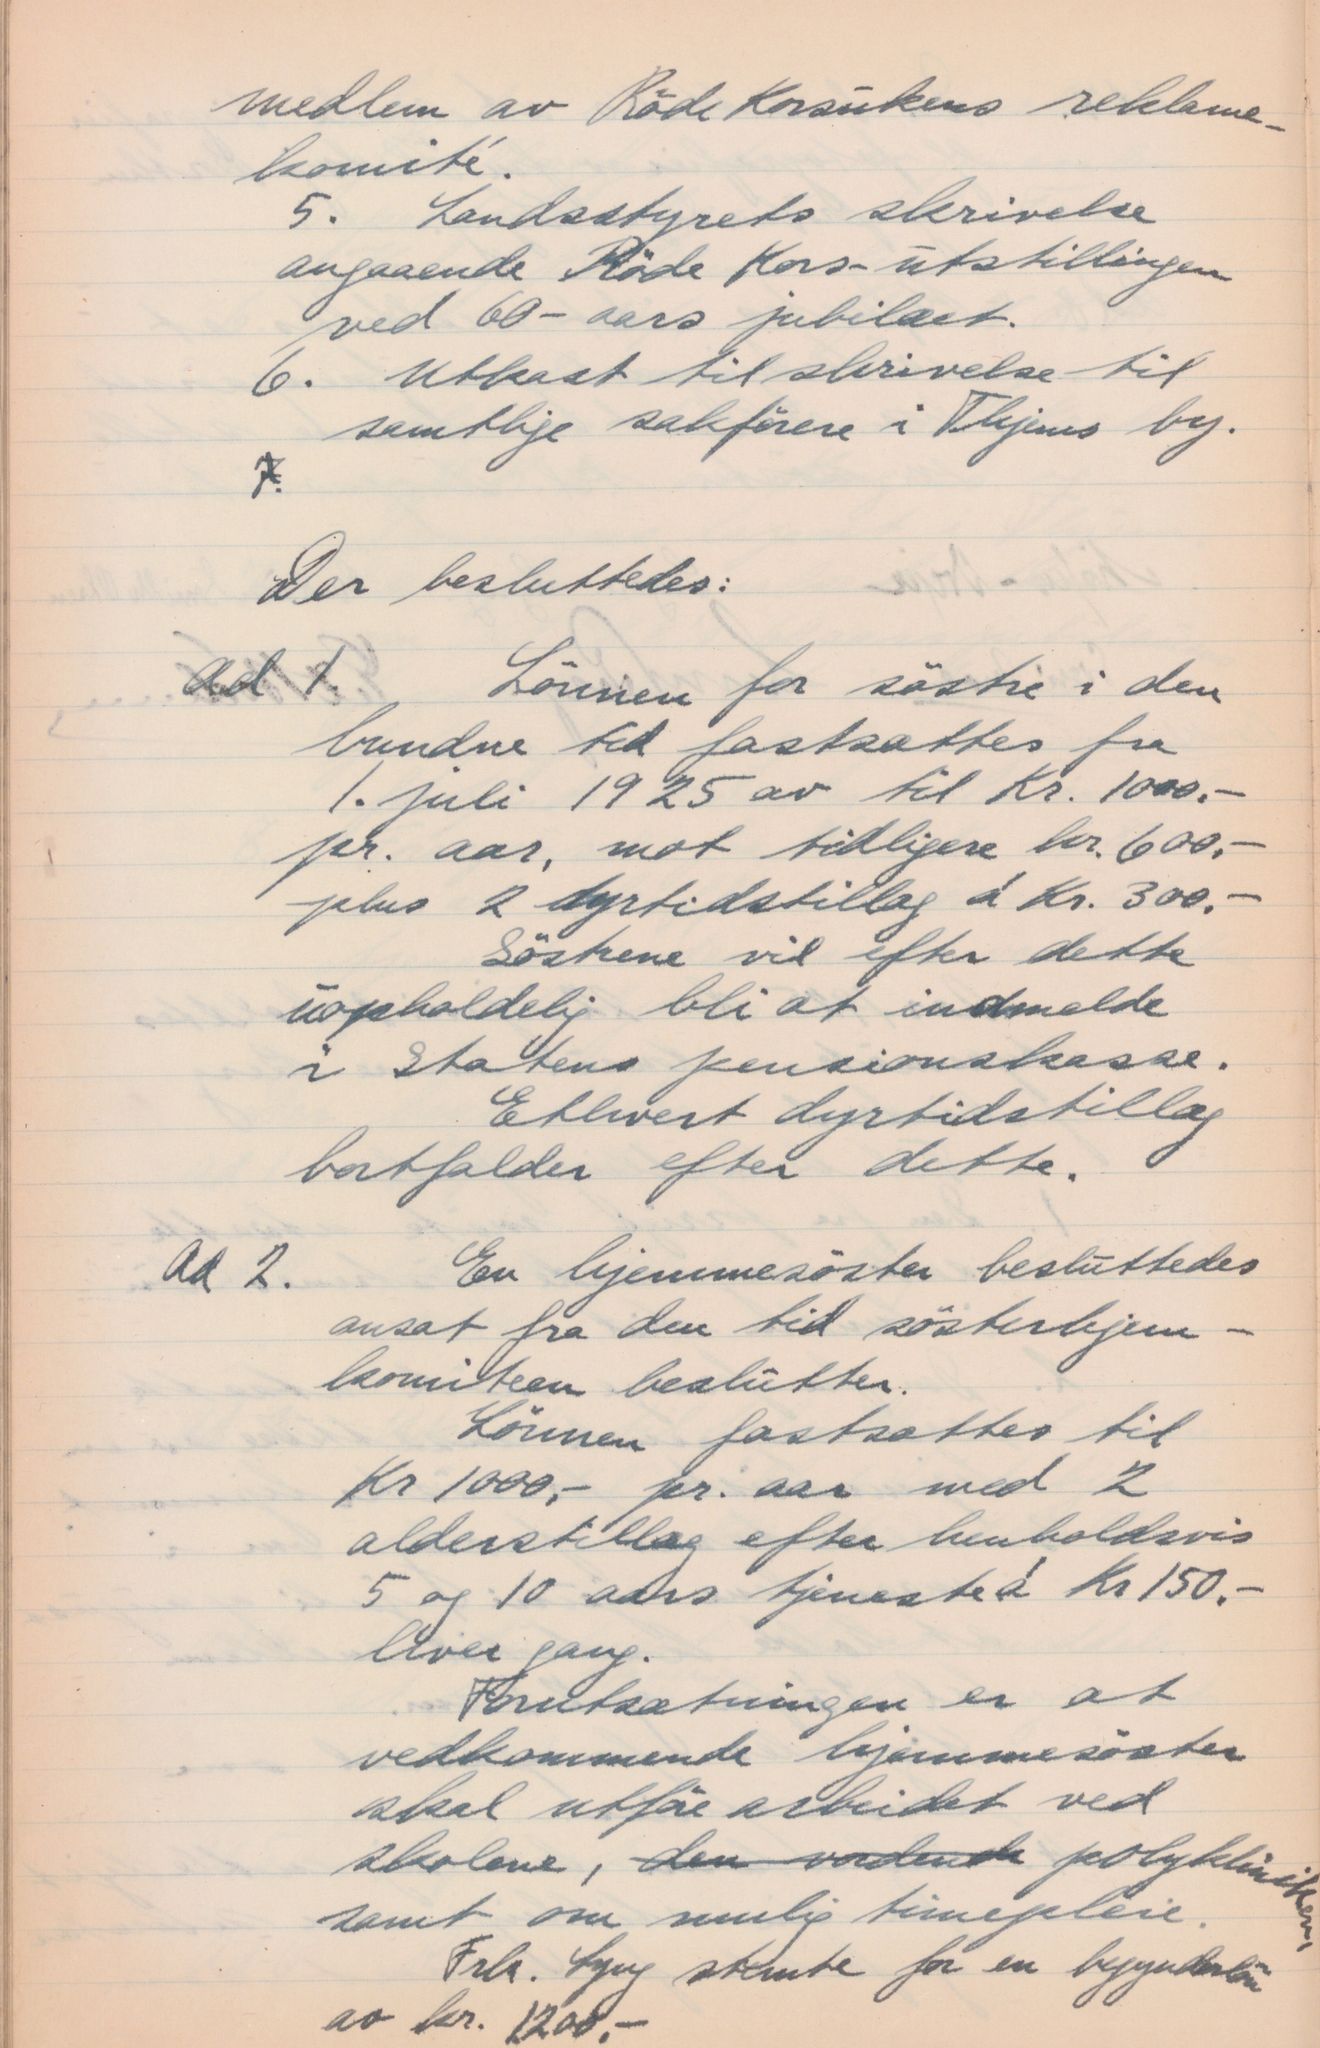 medlem av Röde Korsukens reklame-
komité.
5. Landsstyrets skrivelse
angaaende Röde Kors-utstillingen
ved 60-aars jubilæet.
6. Utkast til skrivelse til
samtlige sakförere i Thjems by.
7.
Der besluttedes:
Ad 1. Lönnen for söstre i den
bundne tid fastsattes fra
1. juli 1925 av til Kr. 1000.-
pr. aar, mot tidligere kr. 600.-
plus 2 dyrtidstillæg á Kr. 300.-
Söstrene vil efter dette
uopholdelig bli at indmelde
i Statens pensionskasse.
Ethvert dyrtidstillæg
bortfalder efter dette.
Ad 2. En hjemmesöster besluttedes
ansat fra den tid sösterhjem-
komiteen beslutter.
Lönnen fastsattes til
Kr 1000,- pr. aar med 2
alderstillæg efter henholdsvis
5 og 10 aars tjeneste á Kr 150.-
hver gang.
Forutsætningen er at
vedkommende hjemmesöster
skal utföre arbeidet ved
skolene, den vordende polykliniken,
samt om mulig timepleie.
Frk. Lyng stemte for en begynderlön
av kr. 1200,-